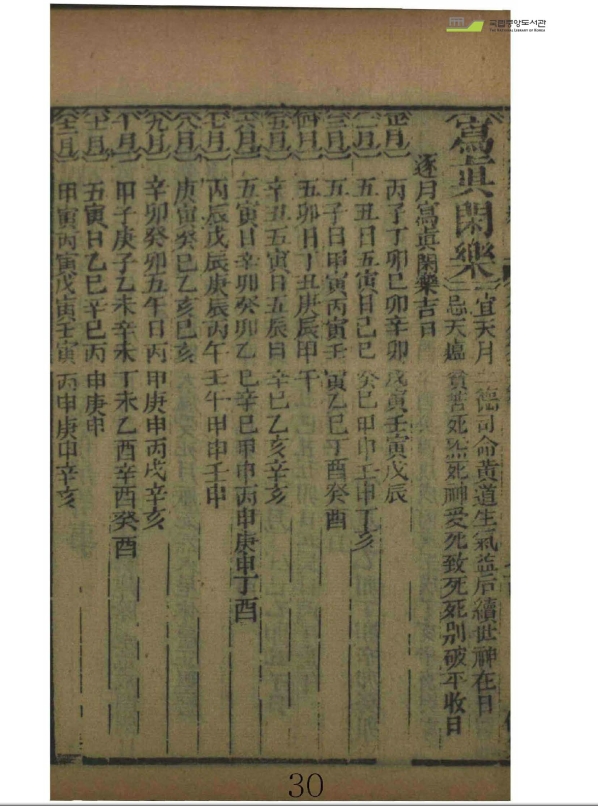 국립중앙도서관
THE NATIONAL LIBRARY OF KOREA
寫真閑樂
宜天月德司命黃道生氣益后續世神在日
忌天瘟 貧苦死炁死神受死致死死別破平收日
逐月寫真閑樂吉日
正月 丙子丁卯巳卯辛卯戊寅壬寅戊辰
二月 五丑日五寅日己巳 癸巳甲申壬申丁亥
三月 五子日甲寅丙寅壬寅乙巳丁酉癸酉
四月 五卯日丁丑庚辰甲午
五月 辛丑五寅日五辰日 辛巳乙亥辛亥
六月 五寅日辛卯癸卯乙巳辛巳甲申丙申庚申丁酉
七月 丙辰戊辰庚辰丙午壬午甲申壬申
八月 庚寅癸巳乙亥巳亥
九月 辛卯癸卯五午日丙申庚申丙戌辛亥
十月 甲子庚子乙未辛未丁未乙酉辛酉癸酉
十一月 五寅日乙巳辛巳丙申庚申
十二月 甲寅丙寅戊寅壬寅 丙申庚申辛亥
30